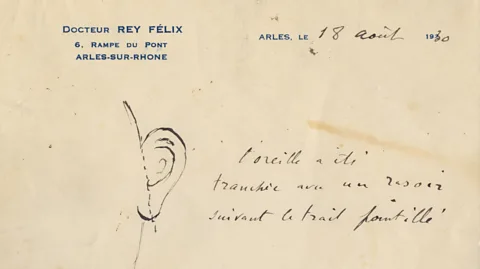 Docteur REY FÉLIX
6, Rampe du Pont
ARLES-SUR-RHONE
ARLES, LE 18 août 1930
l'oreille a été
tranchée avec un rasoir
suivant le trait pointillé